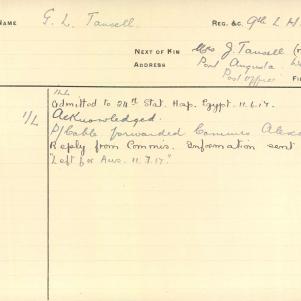 NAME G. L. Tansell REG. &c. 9th L. H.
NEXT OF KIN Mrs J. Tansell
ADDRESS Port Augusta
Post Office
Admitted to 24th Stat. Hosp. Egypt. 11.6.17.
1/L Acknowledged.
P/Cable forwarded Commis Alexa
Reply from Commis. Information sent
"Left for Aus. 11.7.17."